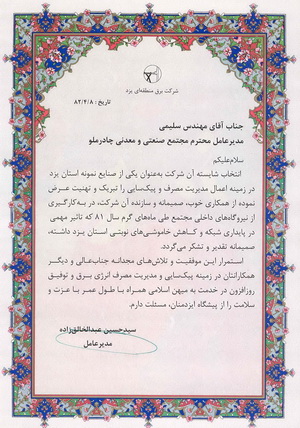 شرکت برق منطقه‌ای یزد
تاریخ : ۸۲/۴/۸
جناب آقای مهندس سلیمی
مدیرعامل محترم مجتمع صنعتی و معدنی چادرملو
سلام‌علیکم
انتخاب شایسته آن شرکت به‌عنوان یکی از صنایع نمونه استان یزد
در زمینه اعمال مدیریت مصرف و پیک‌سایی را تبریک و تهنیت عرض
نموده از همکاری خوب، صمیمانه و سازنده آن شرکت، در به‌کارگیری
از نیروگاه‌های داخلی مجتمع طی ماه‌های گرم سال ۸۱ که تاثیر مهمی
در پایداری شبکه و کاهش خاموشی‌های نوبتی استان یزد داشته،
صمیمانه تقدیر و تشکر می‌گردد.
استمرار این موفقیت و تلاش‌های مجدانه جناب‌عالی و دیگر
همکارانتان در زمینه پیک‌سایی و مدیریت مصرف انرژی برق و توفیق
روزافزون در خدمت به میهن اسلامی همراه با طول عمر با عزت و
سلامت را از پیشگاه ایزدمنان، مسئلت دارم.
سیدحسین عبدالخالق‌زاده
مدیرعامل